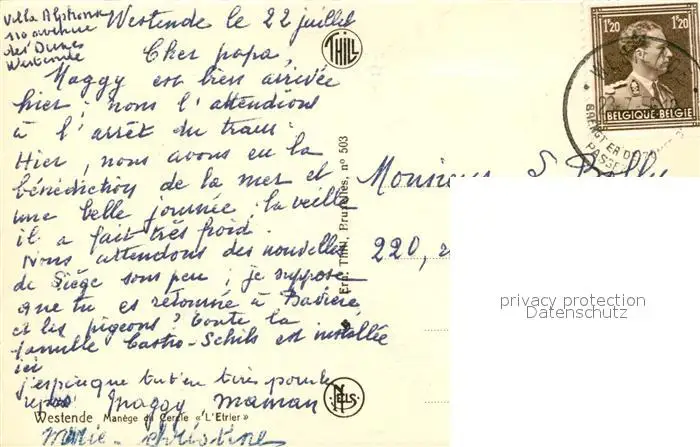 Villa
110 avenue
des Dunes
Westende
Westende le 22 juillet
Cher papa,
Maggy est bien arrivée
hier; nous l'attendions
à l'arrêt du tram.
Hier, nous avons eu la
bénédiction de la mer et
une belle journée, la veille
il a fait très froid.
Nous attendons des nouvelles
de Siège sous peu; je suppose
que tu es retourné à Bavière
et les pigeons? Toute la
famille Castro-Schils est installée
ici
j'espère que tu t'en tires pour le
repas Maggy Maman
Marie-Christine
Westende Manège du Cercle «L'Etrier»
THILL
Ern. Thill, Bruxelles, n° 503
NELS
1'20 1'20
BELGIQUE-BELGIE
Monsieur
220, r
privacy protection
Datenschutz